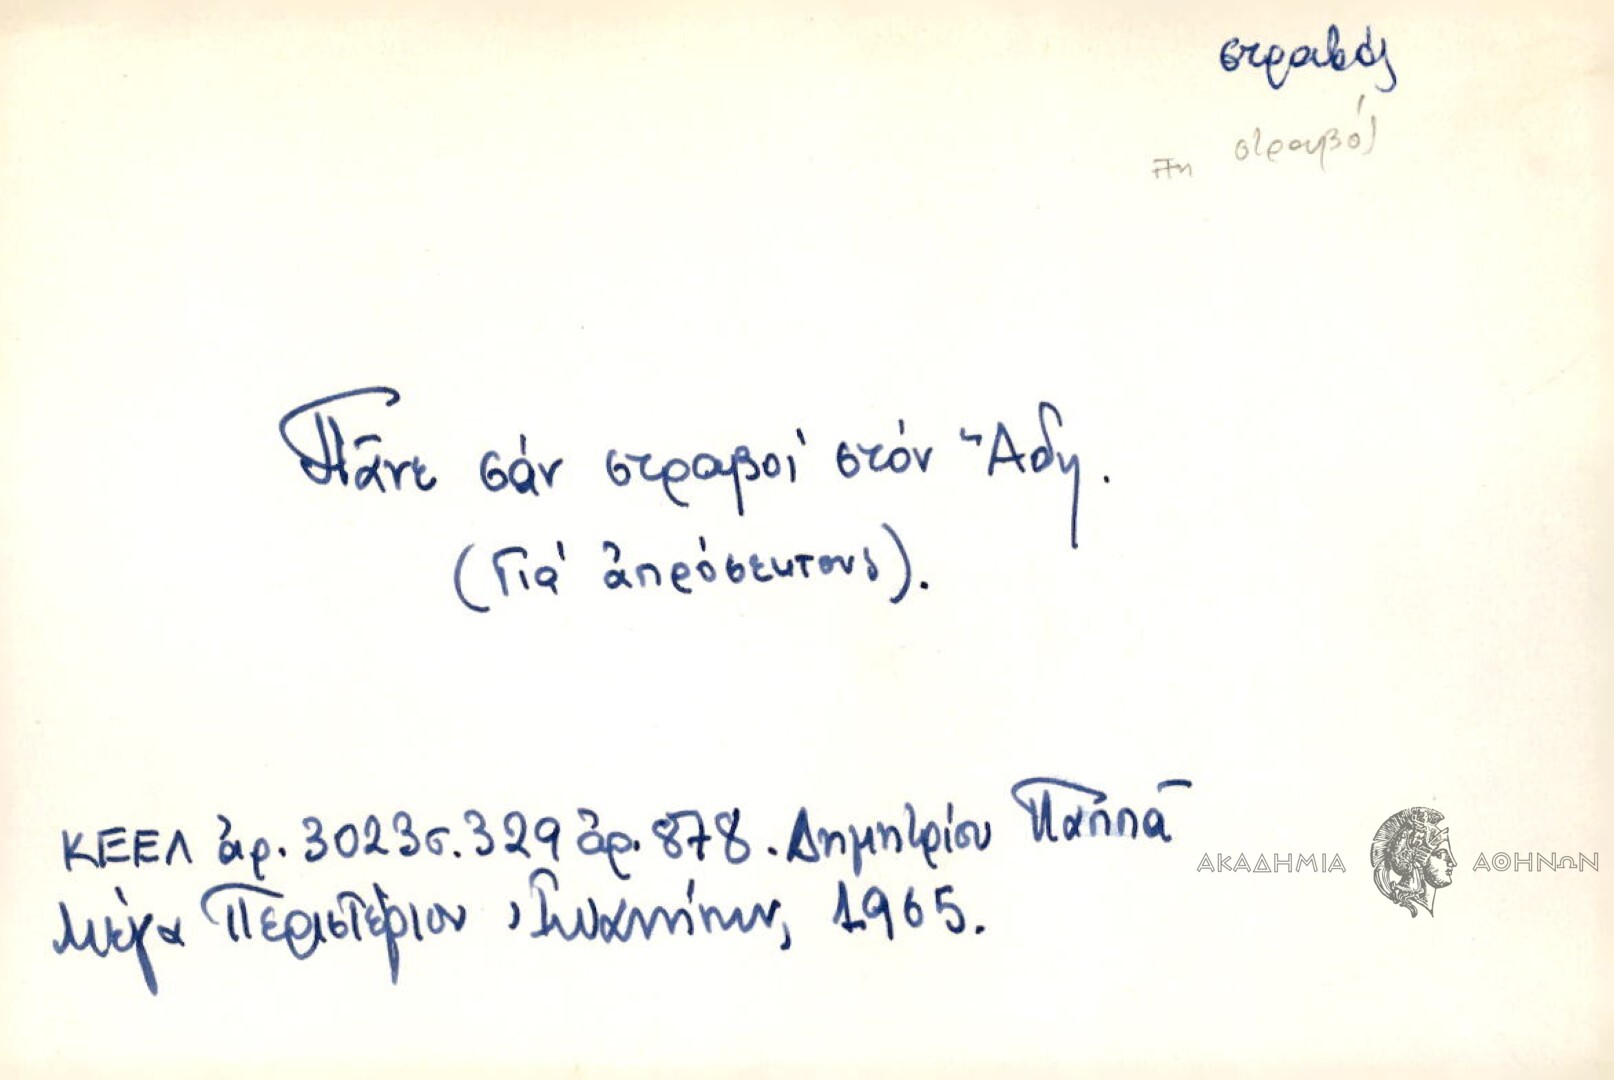 στραβός
στραβός
Πᾶνε σάν στραβοί στόν Ἅδη.
(Γιά ἀπρόσεκτους).
ΚΕΕΛ ἀρ. 3023 σ. 329 ἀρ. 878. Δημητρίου Παππᾶ
Μέγα Περιστέριον Ἰωαννίνων, 1965.
ΑΚΑΔΗΜΙΑ ΑΘΗΝΩΝ